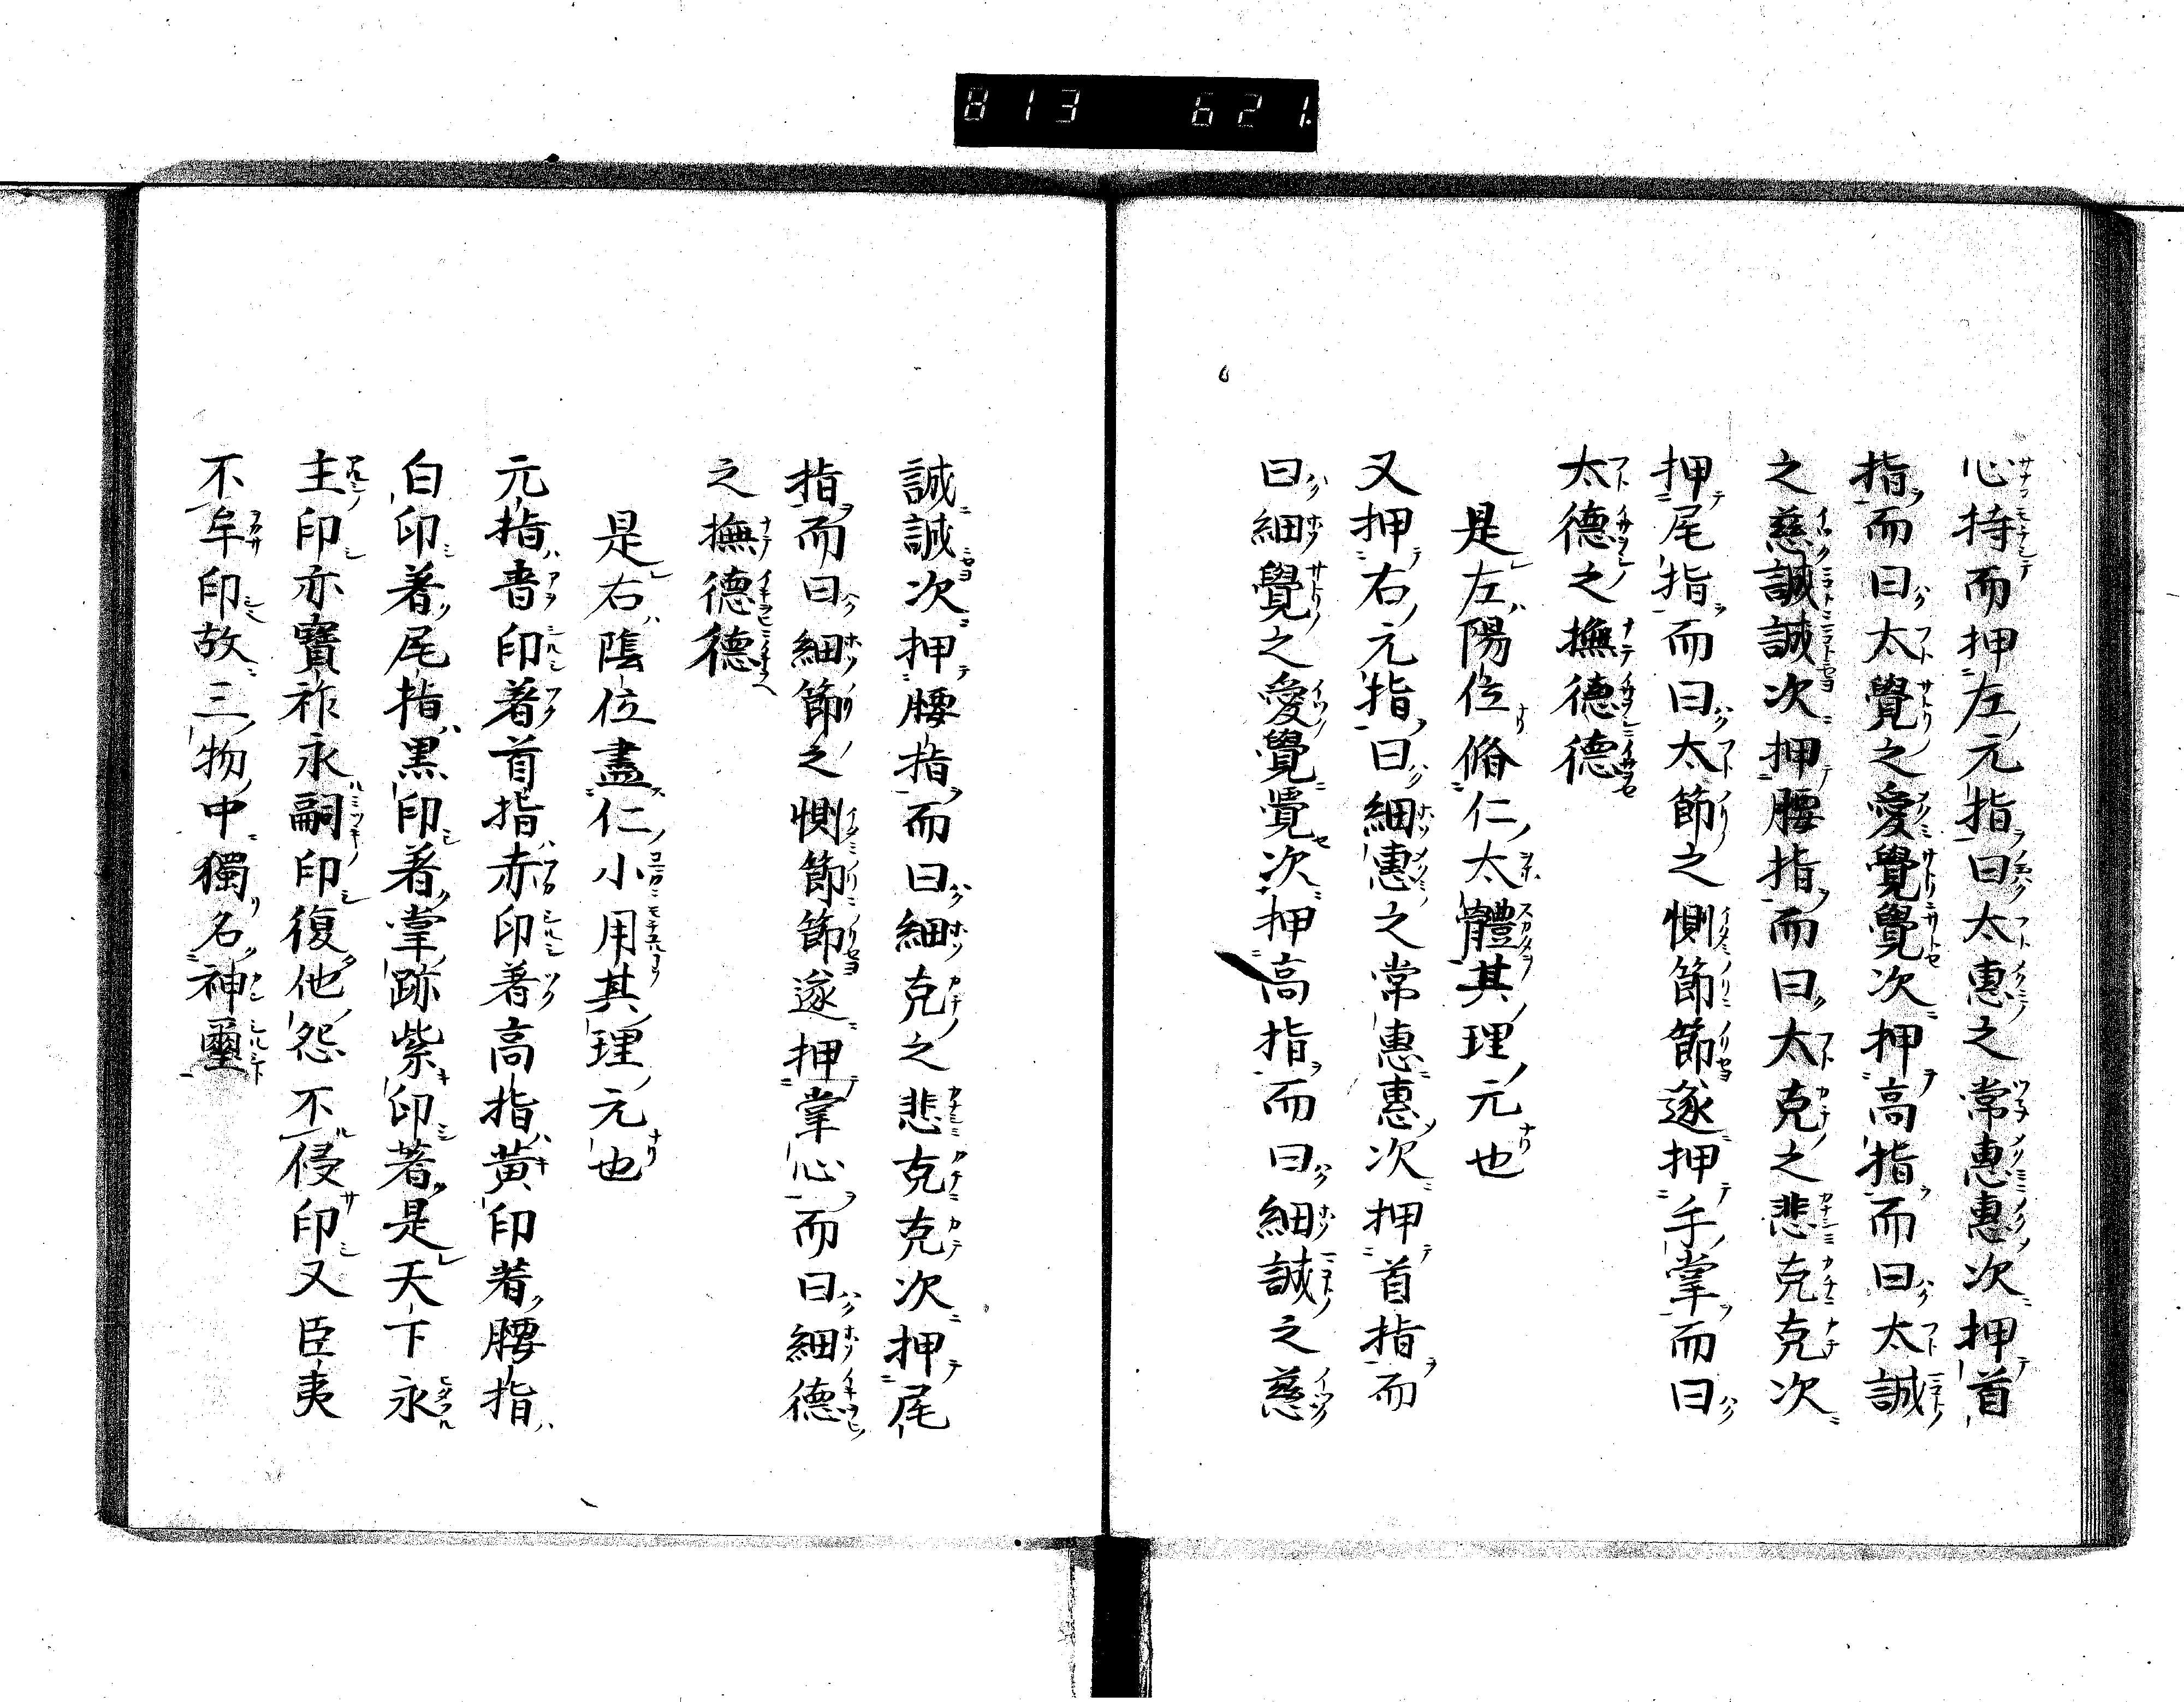 813 621.
心持而押左元指曰太惠之常惠惠次押首
指而曰太覺之愛覺覺次押高指而曰太誠
之慈誠誠次押腰指而曰太克之悲克克次
押尾指而曰太節之惻節節遂押手掌而曰
太德之撫德德
是左陽位脩仁太體其理元也
又押右元指曰細惠之常惠惠次押首指而
曰細覺之愛覺覺次押高指而曰細誠之慈
誠誠次押腰指而曰細克之悲克克次押尾
指而曰細節之惻節節遂押掌心而曰細德
之撫德德
是右陰位盡仁小用其理元也
元指靑印著首指赤印著高指黃印著腰指
白印著尾指黒印著掌跡紫印著是天下永
主印亦寶祚永嗣印復他怨不侵印又臣夷
不牟印故三物中獨名神璽